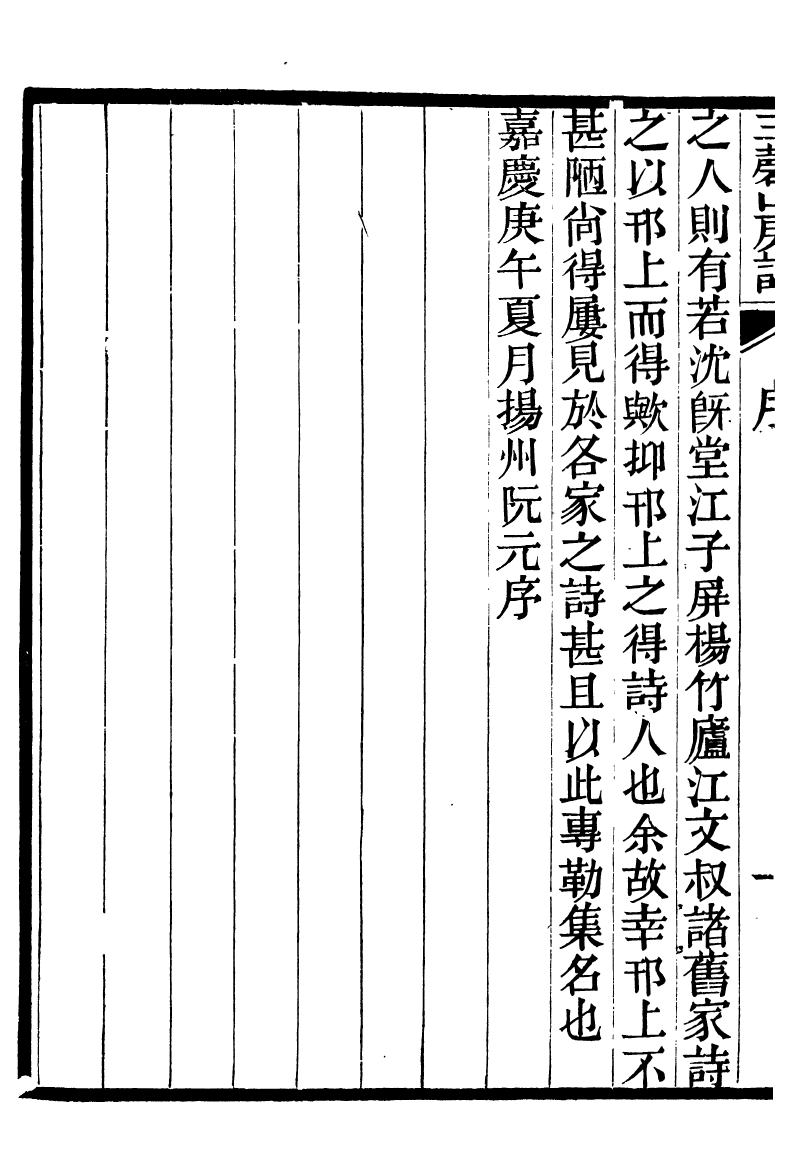 三磬山房詩
序
一
之人則有若沈既堂江子屏楊竹廬江文叔諸舊家詩
之以邗上而得歟抑邗上之得詩人也余故幸邗上不
甚陋尙得屢見於各家之詩甚且以此專勒集名也
嘉慶庚午夏月揚州阮元序